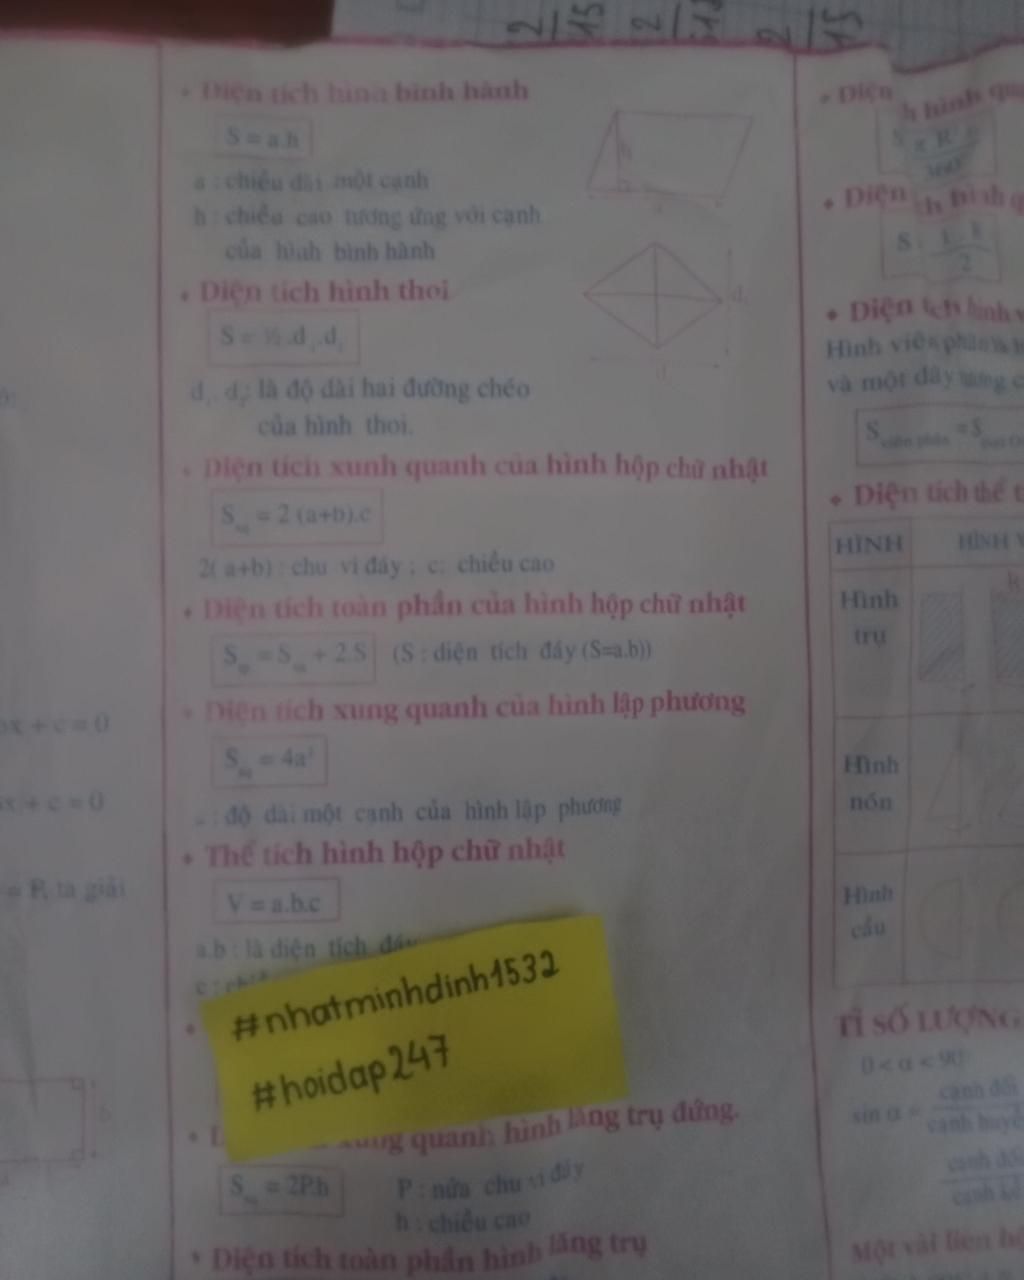 2/15 2/15 2/15
• Diện tích hình bình hành
S = a.h
a : chiều dài một cạnh
h : chiều cao tương ứng với cạnh
của hình bình hành
• Diện tích hình thoi
S = ½.d₁.d₂
d₁. d₂: là độ dài hai đường chéo
của hình thoi.
• Diện tích xunh quanh của hình hộp chữ nhật
Sxq = 2 (a+b).c
2( a+b) : chu vi đáy ; c: chiều cao
• Diện tích toàn phần của hình hộp chữ nhật
Stp = Sxq + 2.S (S : diện tích đáy (S=a.b))
• Diện tích xung quanh của hình lập phương
Sxq = 4a²
: độ dài một cạnh của hình lập phương
• Thể tích hình hộp chữ nhật
V = a.b.c
a.b : là diện tích đáy
c :
#nhatminhdinh1532
#hoidap247
xung quanh hình lăng trụ đứng.
Sxq = 2P.h P : nửa chu vi đáy
h : chiều cao
• Diện tích toàn phần hình lăng trụ
x + c = 0
x + c = 0
= P, ta giải
b
• Diện h hình
• Diện h hình
S
2
• Diện tích hình
Hình viên phân là
và một dây
S viên phân = S
• Diện tích thể
HÌNH HÌNH
Hình
trụ
Hình
nón
Hình
cầu
TỈ SỐ LƯỢNG
0 < α < 90
sin α = cạnh đối
cạnh huyề
cạnh đối
cạnh kề
Một vài liên hệ